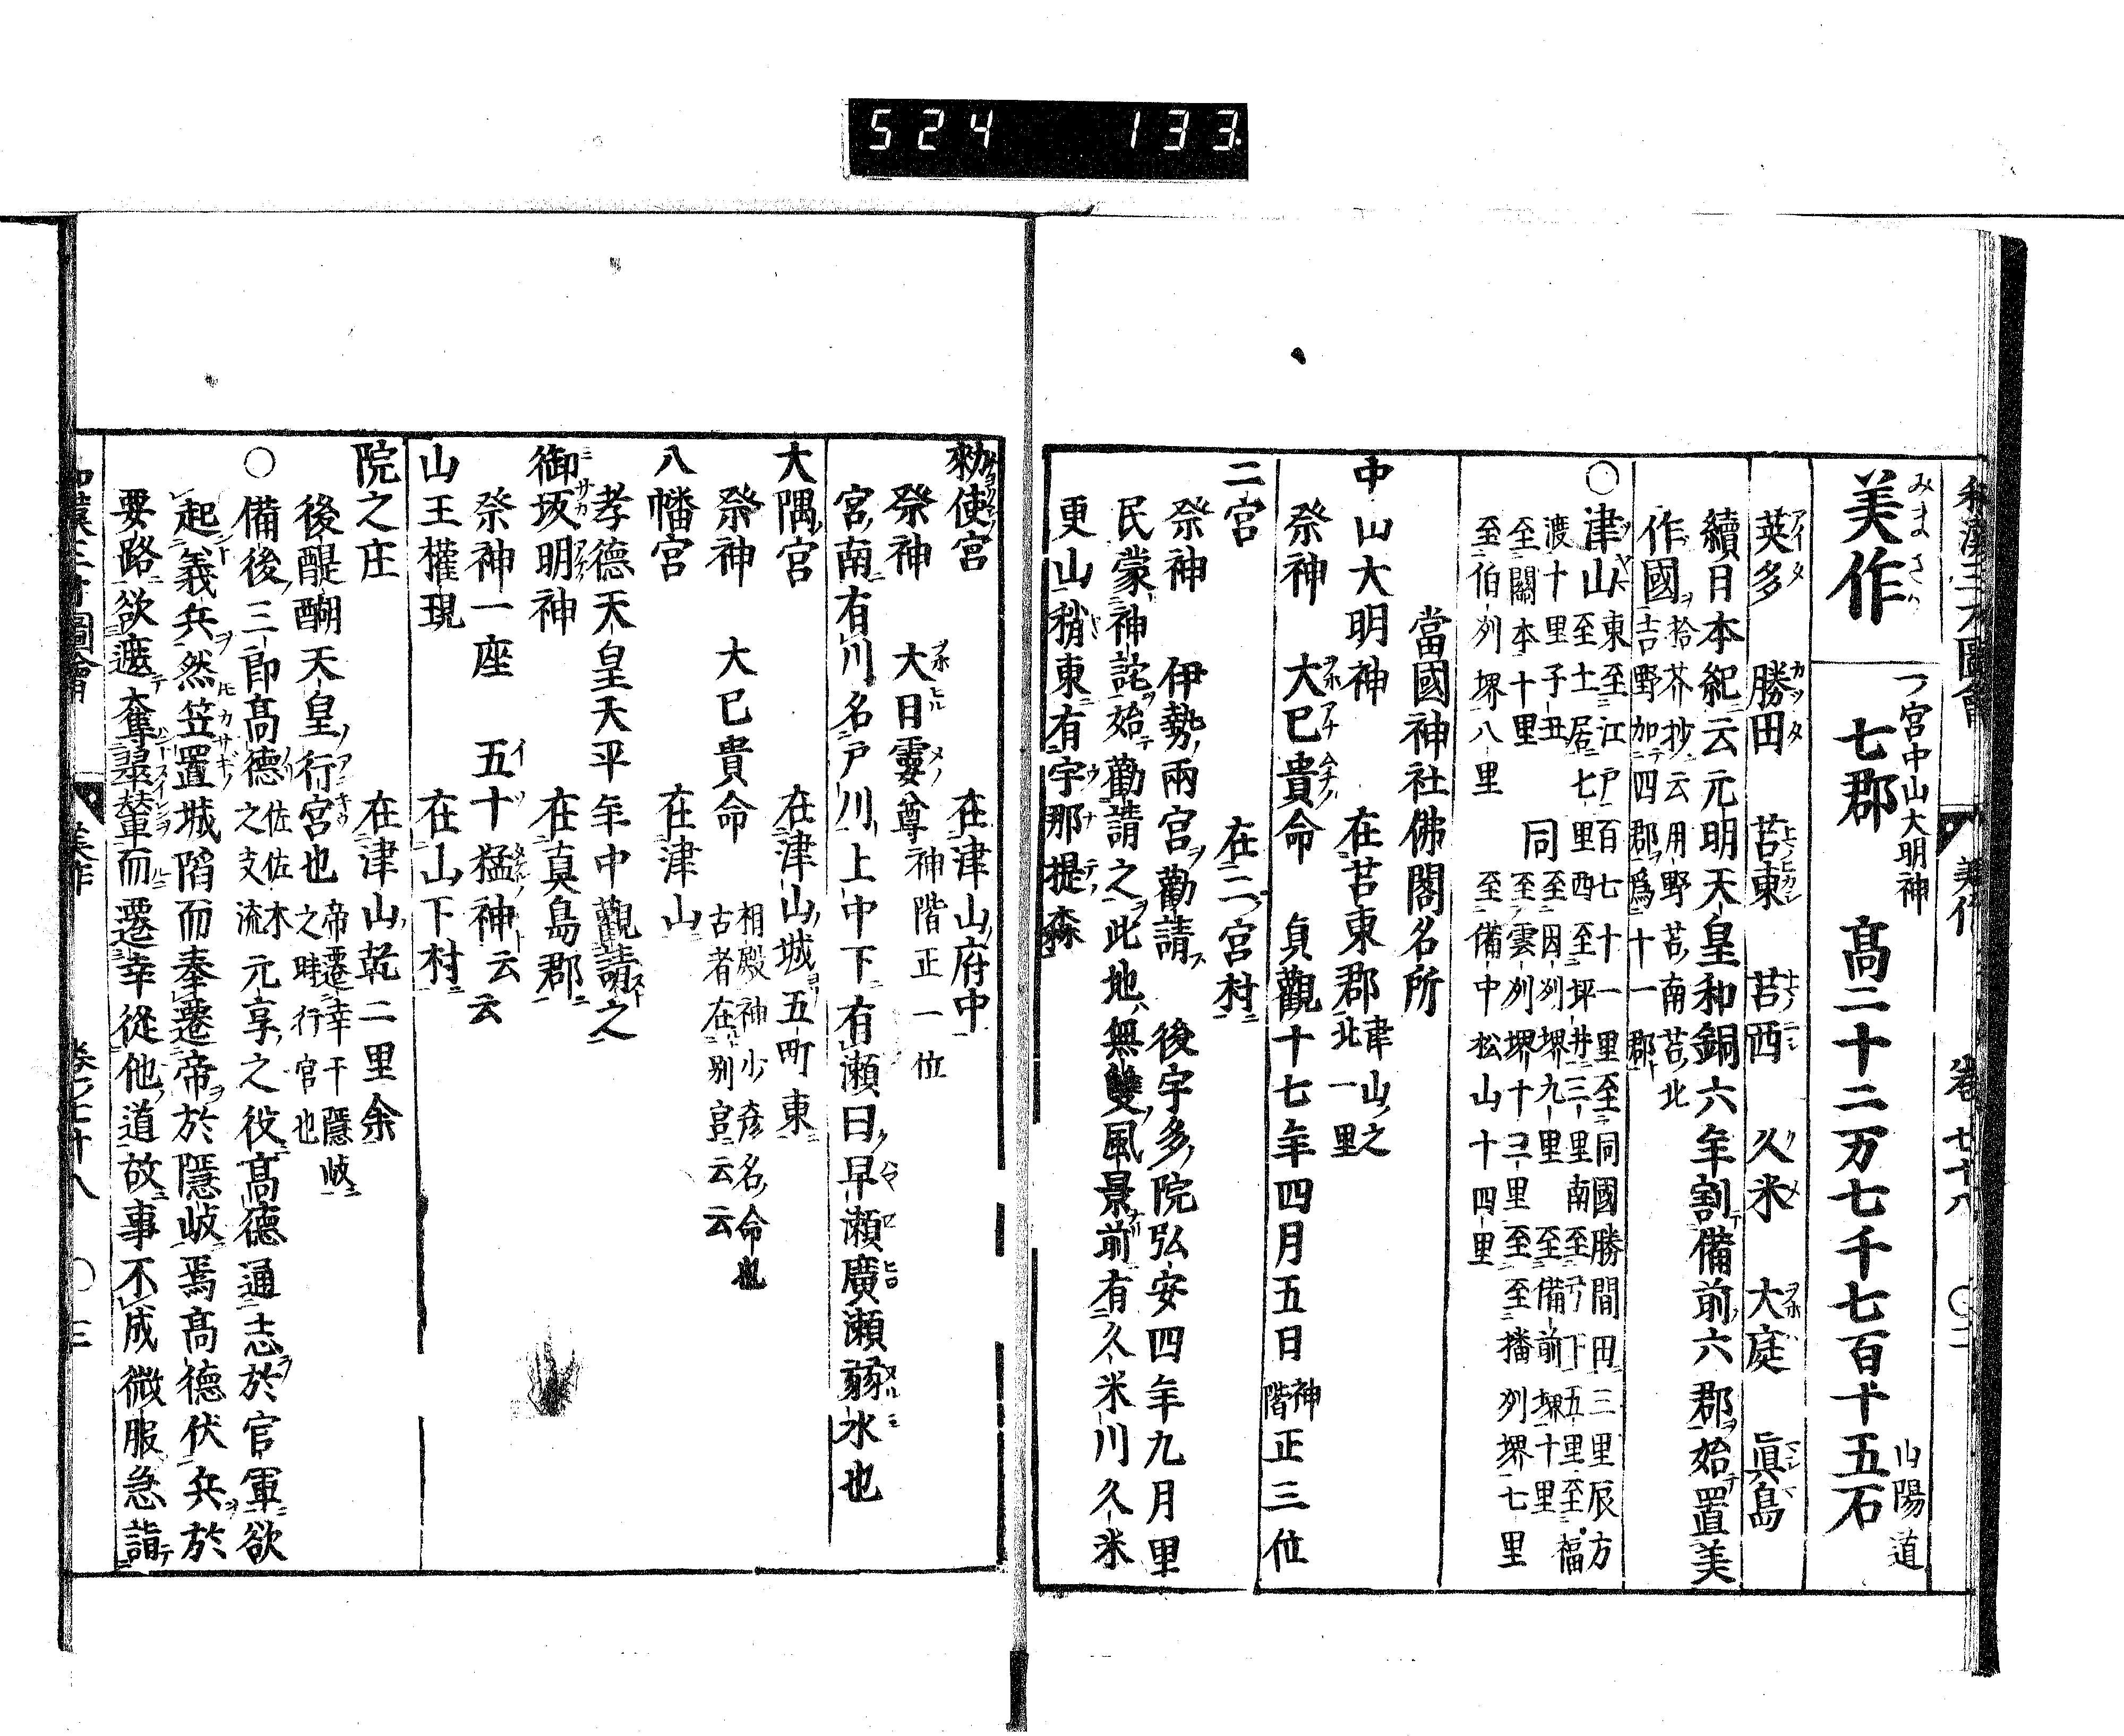 524 133
和漢三才圖會 美作 卷ノ七十八 〇二
美作 七郡 高二十二万七千七百十五石
一ノ宮中山大明神 山陽道
英多 勝田 苫東 苫西 久米 大庭 眞島
續日本紀云元明天皇和銅六年割備前六郡始置美
作國 拾芥抄云用野苫南苫北
吉野加四郡爲十一郡
〇津山 東至江戸百七十一里至同國勝間田三里辰方
至土居七里西至坪井三里南至弓下五里至福
渡十里子丑 同至因刕堺九里至備前堺十里
至關本十里 至雲刕堺十三里至至播刕堺七里
至伯刕堺八里 至備中松山十四里
當國神社佛閣名所
中山大明神 在苫東郡 津山之
北一里
祭神 大巳貴命 貞觀十七年四月五日神階正三位
二宮 在二宮村
祭神 伊勢兩宮勸請 後宇多院弘安四年九月里
民蒙神詫始勸請之此地無雙風景前有久米川久米
更山稍東有宇那提森
勑使宮 在津山府中
祭神 大日孁尊 神階正一位
宮南有川名戸川上中下有瀬曰早瀬廣瀬蒻水也
大隅宮 在津山城五町東
祭神 大巳貴命 相殿神少彦名命也
古者在別宮云云
八幡宮 在津山
孝德天皇天平年中觀請之
御坂明神 在真島郡
祭神一座 五十猛神云云
山王權現 在山下村
院之庄 在津山乾二里余
後醍醐天皇行宮也 帝遷幸于隱岐
之時行宮也
〇備後三郎高德 佐佐木
之支流 元享之役高德通志於官軍欲
起義兵然笠置城陷而奉遷帝於隱岐焉高德伏兵於
要路欲遮奪翠輦而遷幸從他道故事不成微服急詣
和漢三才圖會 美作 卷ノ七十八 〇三